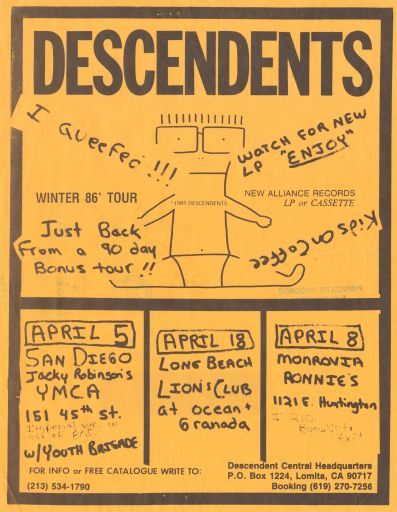 DESCENDENTS
I Queefed !!!
WATCH FOR NEW
LP "ENJOY"
WINTER 86' TOUR
© 1985 DESCENDENTS
NEW ALLIANCE RECORDS
LP or CASSETTE
Just Back
From a 90 day
Bonus tour !!
Kids On Coffee
APRIL 5
SAN DIEGO
Jacky Robinson's
YMCA
151 45th St.
Imperial ave. w.
out of 805
w/YOUTH BRIGADE
APRIL 18
LONG BEACH
LIONS CLUB
at ocean +
Granada
APRIL 8
MONROVIA
RONNIE'S
1121 E. Huntington
I 210
Buena Vista
Exit
FOR INFO or FREE CATALOGUE WRITE TO:
(213) 534-1790
Descendent Central Headquarters
P.O. Box 1224, Lomita, CA 90717
Booking (619) 270-7256